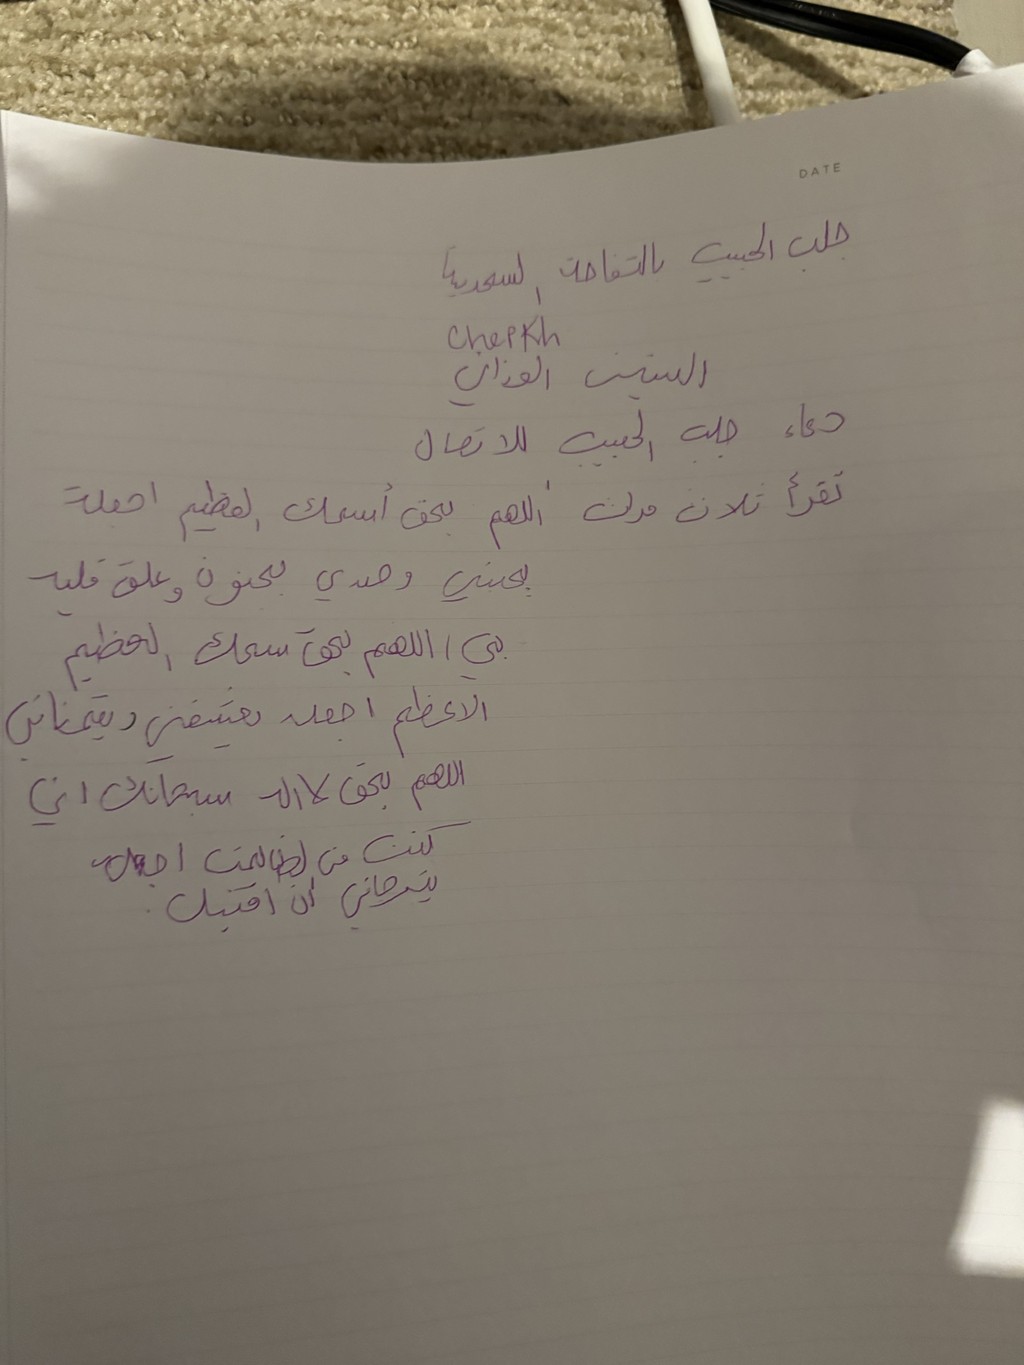 DATE
جلب الحبيب بالتفاحة السعودية
cheikh
الفزاني
دعاء جلب الحبيب للاتصال
تقرأ ثلاث مرات اللهم بحق أسمك العظيم اجعلة
يحبني وحدي بجنون وعلق قلبه
بي / اللهم بحق سمك العظيم
الاعظم اجعله يعشقني ويتمناني
اللهم بحق لا اله سبحانك اني
كنت من الظالمين اجعله
يترجاني ان اقتبل